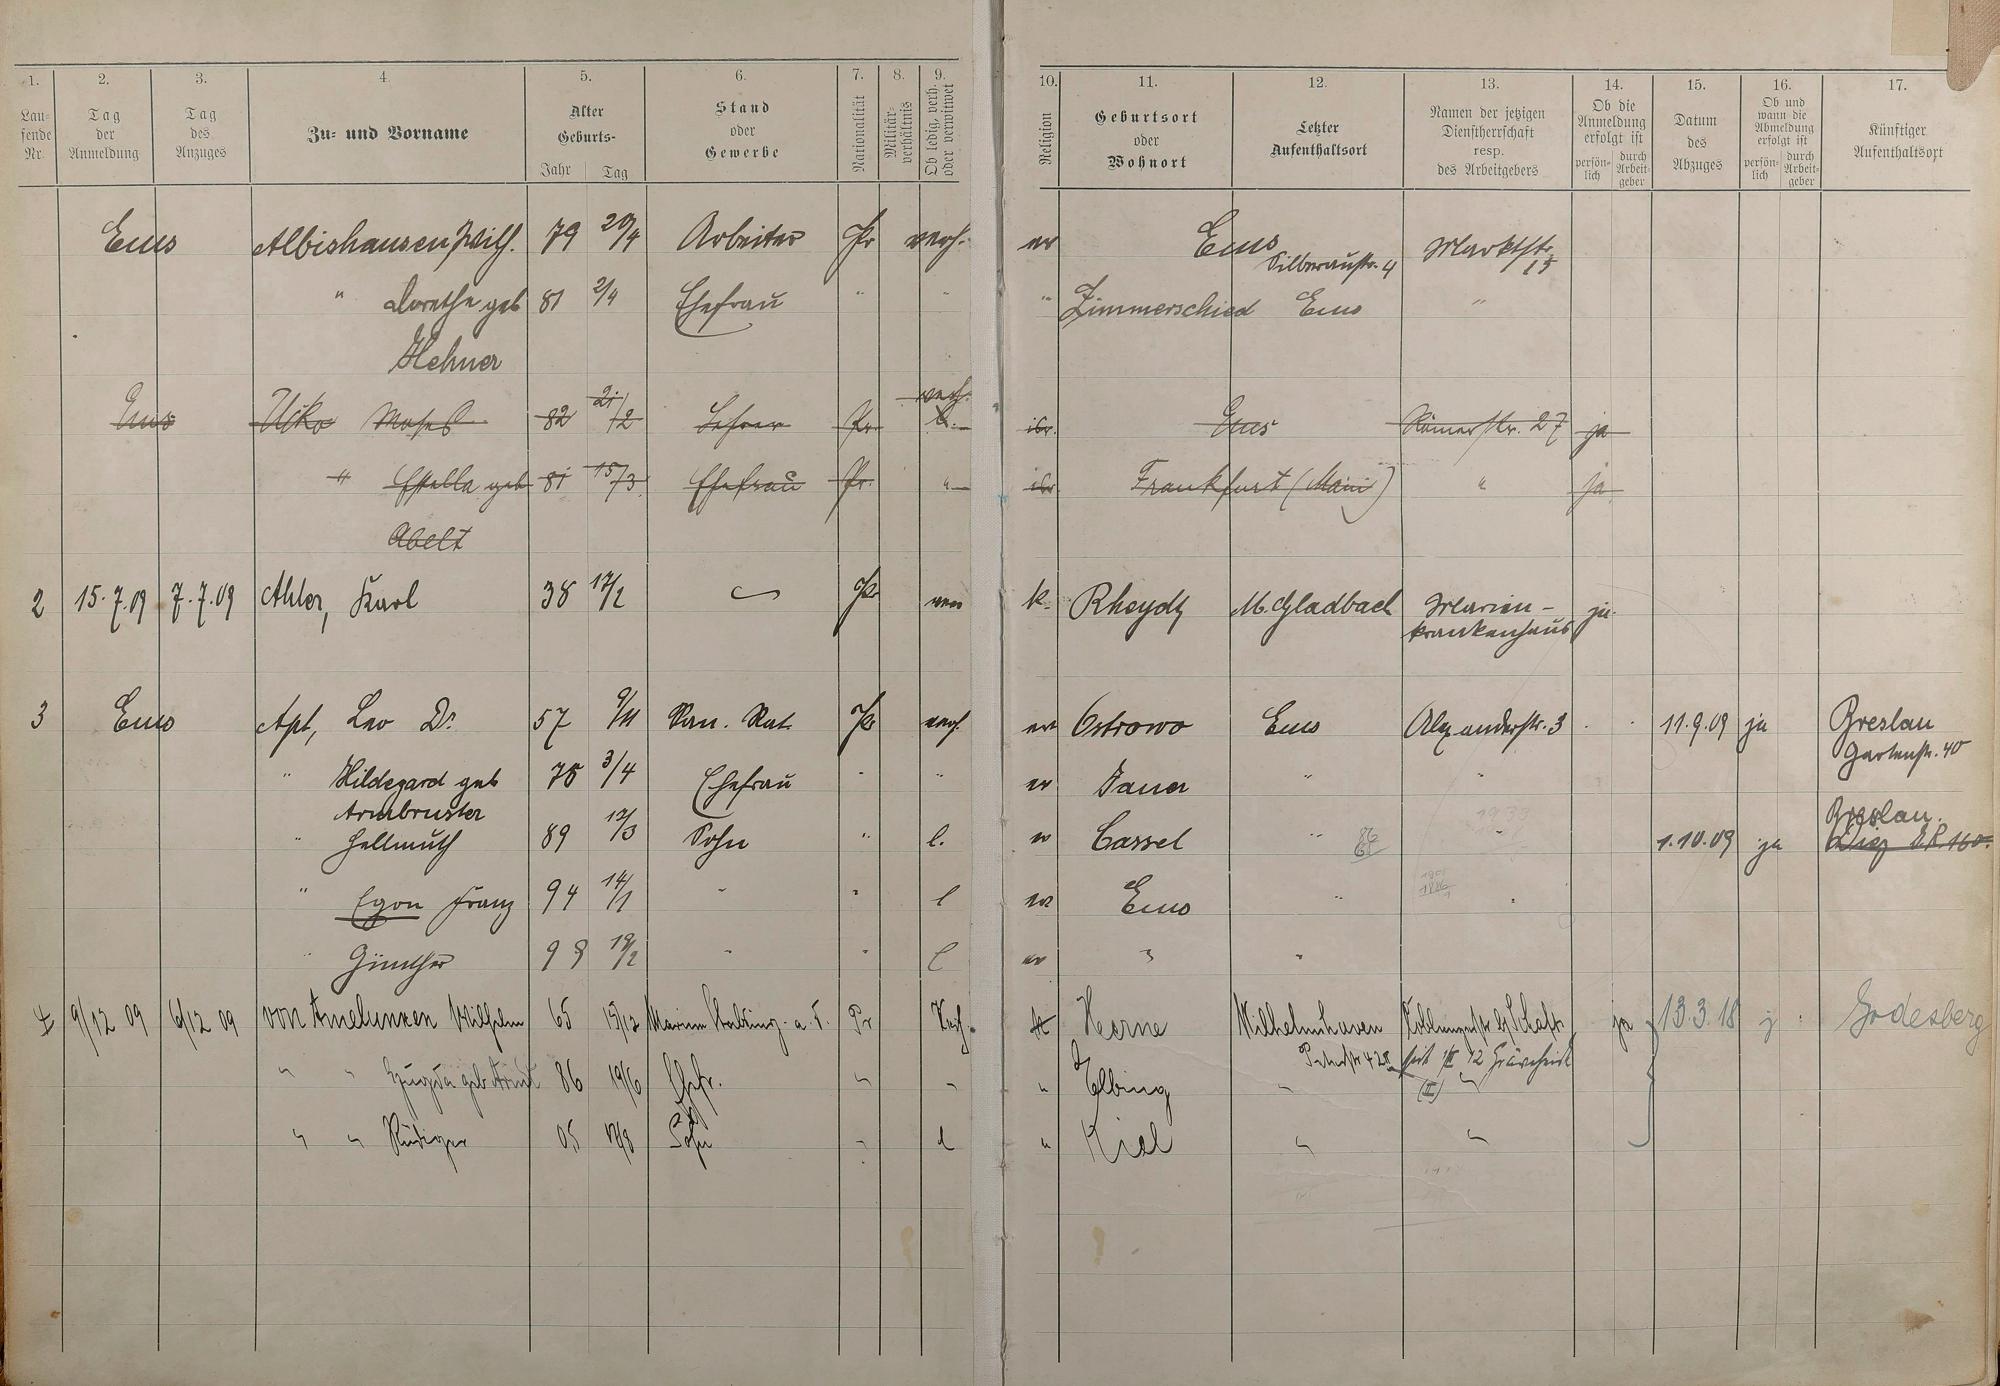 1. 2. 3. 4. 5. 6. 7. 8. 9. 10. 11. 12. 13. 14. 15. 16. 17.
Lau-
fende
Nr.
Tag
der
Anmeldung
Tag
des
Anzuges
Zu- und Vorname
Alter
Geburts-
Jahr Tag
Stand
oder
Gewerbe
Nationalität
Militär-
verhältnis
Ob ledig, verh.
oder verwitwet
Religion
Geburtsort
oder
Wohnort
Letzter
Aufenthaltsort
Namen der jetzigen
Dienstherrschaft
resp.
des Arbeitgebers
Ob die
Anmeldung
erfolgt ist
persön-
lich
durch
Arbeit-
geber
Datum
des
Abzuges
Ob und
wann die
Abmeldung
erfolgt ist
persön-
lich
durch
Arbeit-
geber
Künftiger
Aufenthaltsort
Ems Albishausen Wilh. 79 20/4 Arbeiter Pr verh. ev Ems Silberaustr. 4 Marktstr. 15
" Dorethe geb 81 2/4 Ehefrau " " " Zimmerschied Ems "
Hehner
verh.
Ems Ucko Moses 82 21/2 Lehrer Pr. l. isr. Ems Römerstr. 27 ja
" Estella geb 81 15/3 Ehefrau Pr. " isr Frankfurt (Main) " ja
Abelt
2 15.7.09 7.7.09 Ahler, Karl 38 Pr k. Rheydt M. Gladbach Marien-
krankenhaus ja
3 Ems Apt, Leo Dr. 57 9/11 San. Rat. Pr verh. ev Ostrowo Ems Alexanderstr. 3 11.9.09 ja Breslau
Gartenstr. 40
" Hildegard geb 75 3/4 Ehefrau " " ev Jauer " "
Armbruster
" Hellmuth 89 Sohn " l. ev Cassel " " 1.10.09 ja Breslau.
" Egon Franz 94 14/1 " " l ev Ems " "
" Günther 98 19/2 " " l ev " "
4 9/12 09 6/12 09 von Amelunxen Wilhelm 65 15/12 Marine a. D. Pr Verh. Herne Wilhelmshaven ja 13.3.18 j Godesberg
" " geb Arndt 86 19/6 Ehefr. " " " Elbing " "
" " Rüdiger 05 Sohn " l " Kiel " "